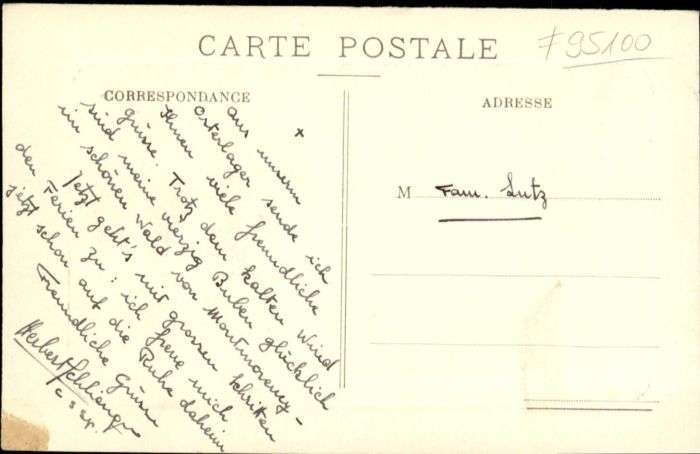 CARTE POSTALE
F 95100
CORRESPONDANCE
ADRESSE
x
aus unserm
Osterlager sende ich
Ihnen viele freundliche
Grüsse. Trotz dem kalten Wind
sind meine vierzig Buben glücklich
im schönen Wald von Montmorency-
Jetzt geht's mit grossen Schritten
den Ferien zu: ich freue mich
jetzt schon auf die Ruhe daheim
Freundliche Grüsse
Herbert
M Fam. Lutz